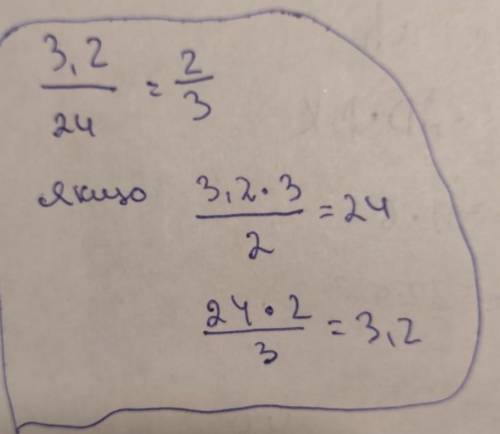 3,2/24 = 2/3
якщо 3,2·3/2 = 24
24·2/3 = 3,2